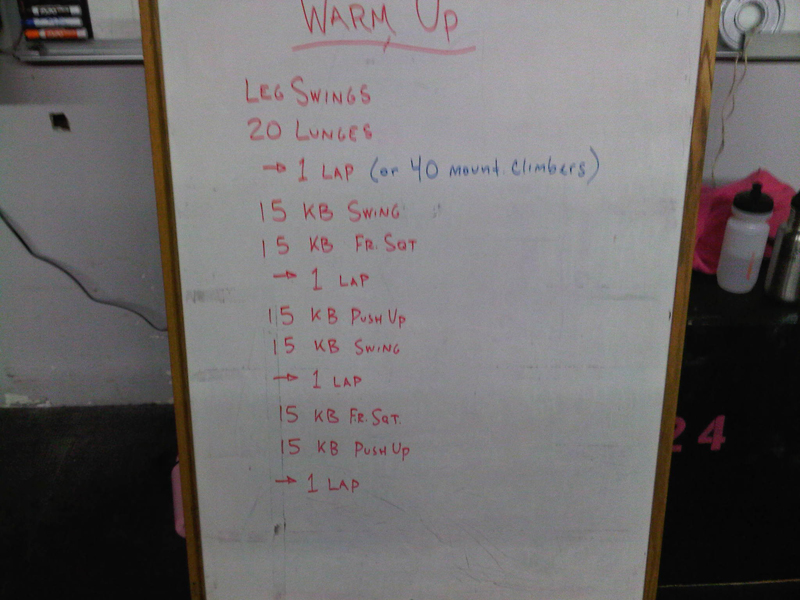 WARM UP
LEG SWINGS
20 LUNGES
→ 1 LAP (or 40 mount. climbers)
15 KB SWING
15 KB FR. SQT
→ 1 LAP
15 KB PUSH UP
15 KB SWING
→ 1 LAP
15 KB FR. SQT.
15 KB PUSH UP
→ 1 LAP
24